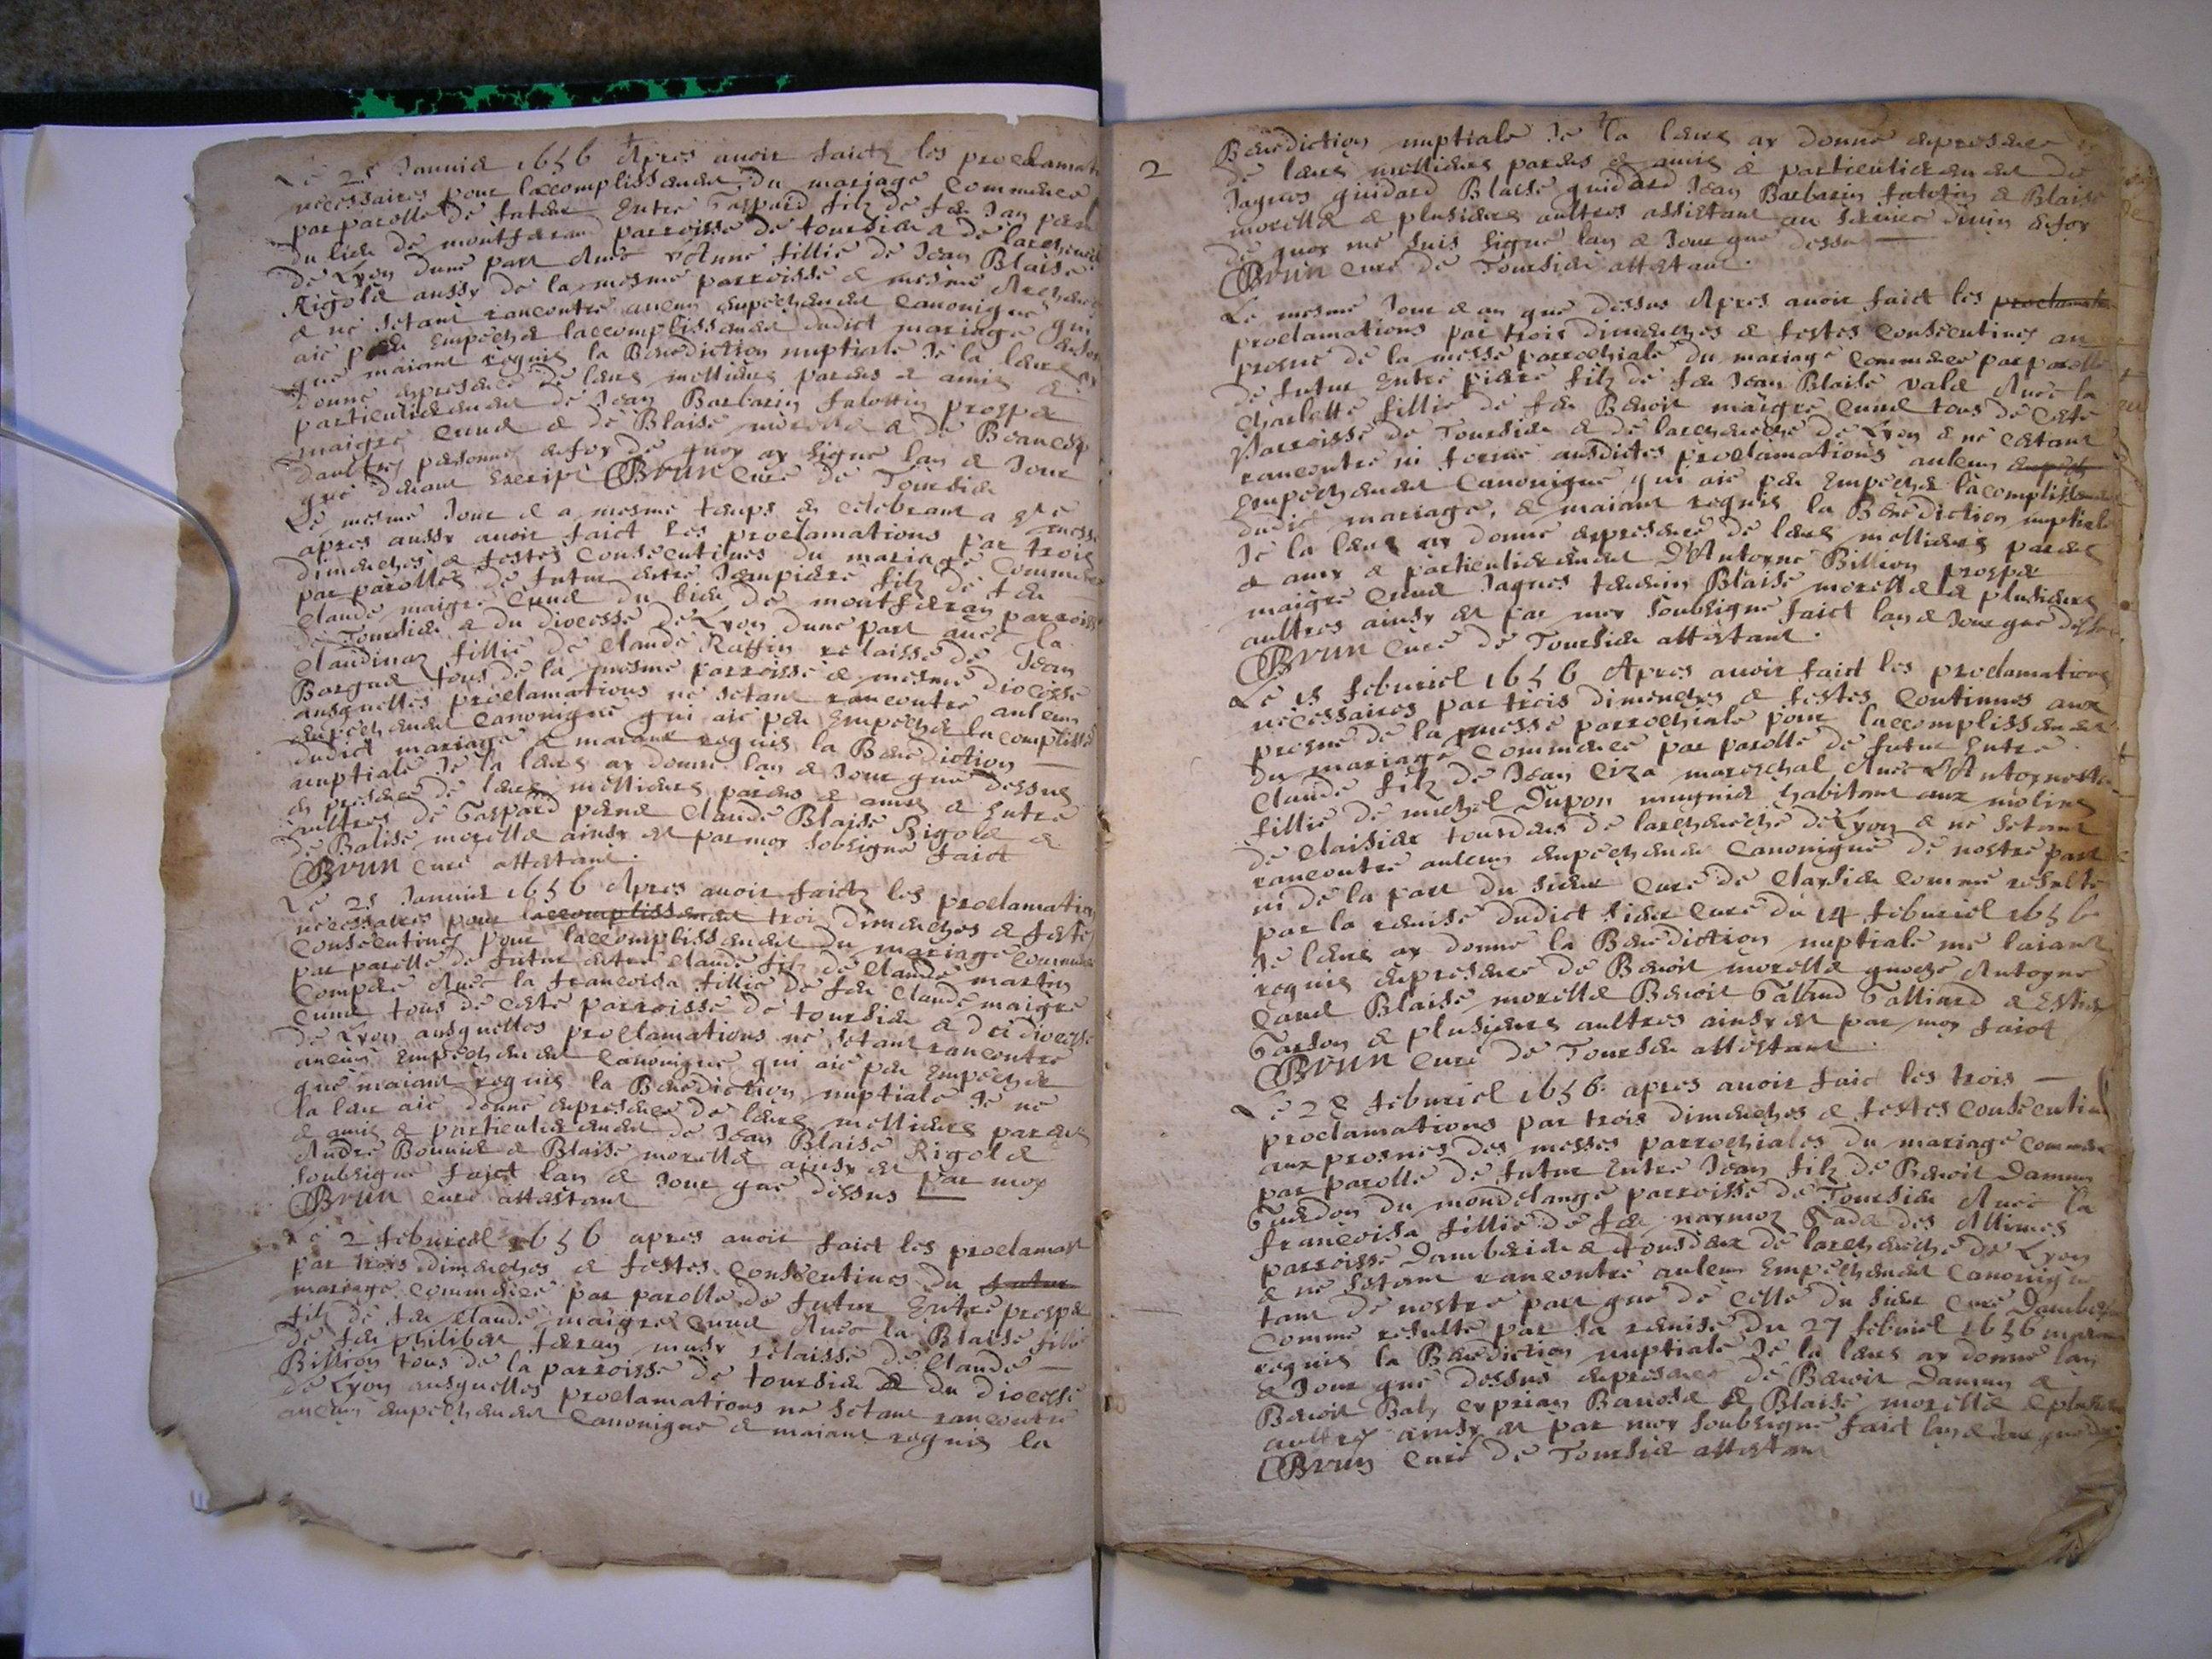 Le 25 Januier 1656 Apres auoir faictz les proclamat
necessaires pour laccomplissement du mariage commencé
par parolle de future Entre Gaspard filz de feu Jan
du lieu de montferran parroisse de toursieu & de larcheuech
de Lyon dune part Auec Anne fillie de Jean Blaise
Rigolet aussy de la mesme parroisse & mesme Archeue
& ne sétant rancontré aucun empechement canonique qui
aie peu Empecher laccomplissement dudict mariage
que maiant requis la Benediction nuptiale Je la leurs ay
donné enpresence de leurs mellieurs parens & amis &
particulierement de Jean Barbarin falottin prosper
maigre & de Blaise morellet & de
daultres personnes enfoy de quoy ay signé lan & Jour
que deuant Escript Brun curé de Toursieu
Le mesme Jour & a mesme temps en celebrant messe
apres aussy auoir faict les proclamations par trois
dimenches & festes consecutiues du mariage commencé
par parolles de futur entre Jeanpierre filz de feu
Claude maigre du lieu de montferran parroisse
de Toursieu & du diocesse de Lyon dune part auec la
Claudinaz fillie de Claude Raffin relaissé de Jean
Barguet tous de la mesme parroisse & mesme diocesse
ausquelles proclamations ne sétant rancontré aulcun
empechement canonique qui aie peu Empecher lacompliss
dudict mariage & maiant requis la Benediction
nuptiale Je la leurs ay donné lan & Jour que dessus
en presence de leurs mellieurs parens & amis & Entre
aultres de Gaspard Claude Blaise Rigolet &
de Balise morellet ainsy est par moy sobsigné faict
Brun curé attestant.
Le 25 Januier 1656 Apres auoir faictz les proclamation
necessaires pour laccomplissement trois dimenches & festes
consecutiues pour laccomplissement du mariage commencé
par parolle de futur entre Claude filz de Claude martin
Compere Auec la francoisa fillie de feu Claude maigre
tous de ceste parroisse de toursieu & du diocesse
de Lyon ausquelles proclamations ne sétant rancontré
aucuns Empechement canonique qui aie peu Empecher
que maiant requis la Benediction nuptiale Je ne
la leur aie donné enpresence de leurs mellieurs parens
& amis & particulierement de Jean Blaise Rigolet
André Bonnier & Blaise morellet ainsy est par moy
soubsigné faict lan & Jour que dessus
Brun curé attestant
Le 2 feburier 1656 apres auoir faict les proclamat
par trois dimenches & festes consecutiues du futur
mariage commencé par parolle de futur Entre prosper
filz de feu Claude maigre Auec la Blaise fillie
de feu philibert relaissé de Claude
Billion tous de la parroisse de toursieu & du diocesse
de Lyon ausquelles proclamations ne sétant rancontré
aucuns empechement canonique & maiant requis la
2
Benediction nuptiale Je la leurs ay donné enpresence
de leurs mellieurs parens & amis & particulierement de
Jaques guidard Blaise guidard Jean Barbarin falotin & Blaise
morellet & plusieurs aultres assistant au seruice diuin enfoy
de quoy me suis signé lan & Jour que dessu
Brun curé de Toursieu attestant.
Le mesme Jour & an que dessus Apres auoir faict les proclamation
proclamations par trois dimenches & festes consecutiues au
prosne de la messe parrochiale du mariage commencé par parolle
de futur Entre pierre filz de feu Jean Blaise valet Auec la
Charlotte fillie de feu Benoit maigre tous de ceste
Parroisse de Toursieu & de larcheueche de Lyon & ne estant
rancontré ni formé ausdictes proclamations aulcun
Empechement canonique qui aie peu Empecher lacomplissement
dudict mariage, & maiant requis la Benediction nuptiale
Je la leurs ay donné enpresence de leurs mellieurs parens
& amy & particulierement D'Antoyne Billion prosper
maigre Jaques Blaise morellet & plusieurs
aultres ainsy est par moy soubsigné faict lan & Jour que dessus
Brun curé de Toursieu attestant.
Le 15 feburier 1656 Apres auoir faict les proclamations
necessaires par trois dimenches & festes continues aux
prosne de la messe parrochiale pour laccomplissement
du mariage commencé par parolle de futur Entre
Claude filz de Jean Ciza mareschal Auec L'Antoynette
fillie de michel Dupon mugnier habitant aux molins
de Claisieu tousdeux de larcheueché de Lyon & ne sétant
rancontré aulcun empechement canonique de nostre part
ni de la part du sieur curé de Claysieu comme resulte
par la remise dudict sieur curé du 14 feburier 1656
Je leurs ay donné la Benediction nuptiale me laiant
requis enpresence de Benoit morellet Antoyne
Blaise morellet Benoit Galliard & Estiene
& plusieurs aultres ainsy est par moy faict
Brun curé de Toursieu attestant.
Le 28 feburier 1656. apres auoir faict les trois
proclamations par trois dimenches & festes consecutiu
aux prosnes des messes parrochiales du mariage commen
par parolle de futur Entre Jean filz de Benoit Damun
du mondelange parroisse de Toursieu Auec la
francoisa fillie de feu des Allimes
parroisse Damberieu & tousdeux de larcheueché de Lyon
& ne sétant rancontré aulcun Empechement canonique
tant de nostre part que de celle du sieur curé Damberieu
comme resulte par sa remise du 27 febvrier 1656
requis la Benediction nuptiale Je la leurs ay donné lan
& Jour que dessus enpresence de Benoit Damun &
Benoit Baby & Blaise morellet & plusieurs
aultres ainsy est par moy soubsigné faict lan & Jour que
Brun curé de Toursieu attestant